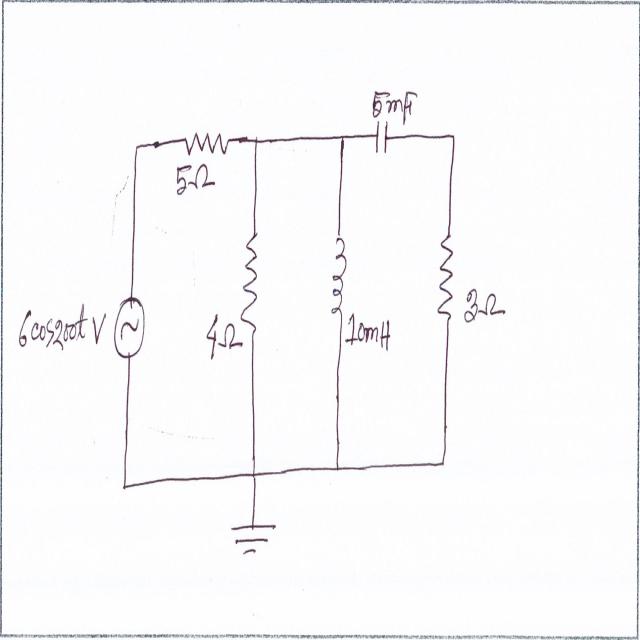 5mF
5Ω
6cos200t V
4Ω
10mH
3Ω